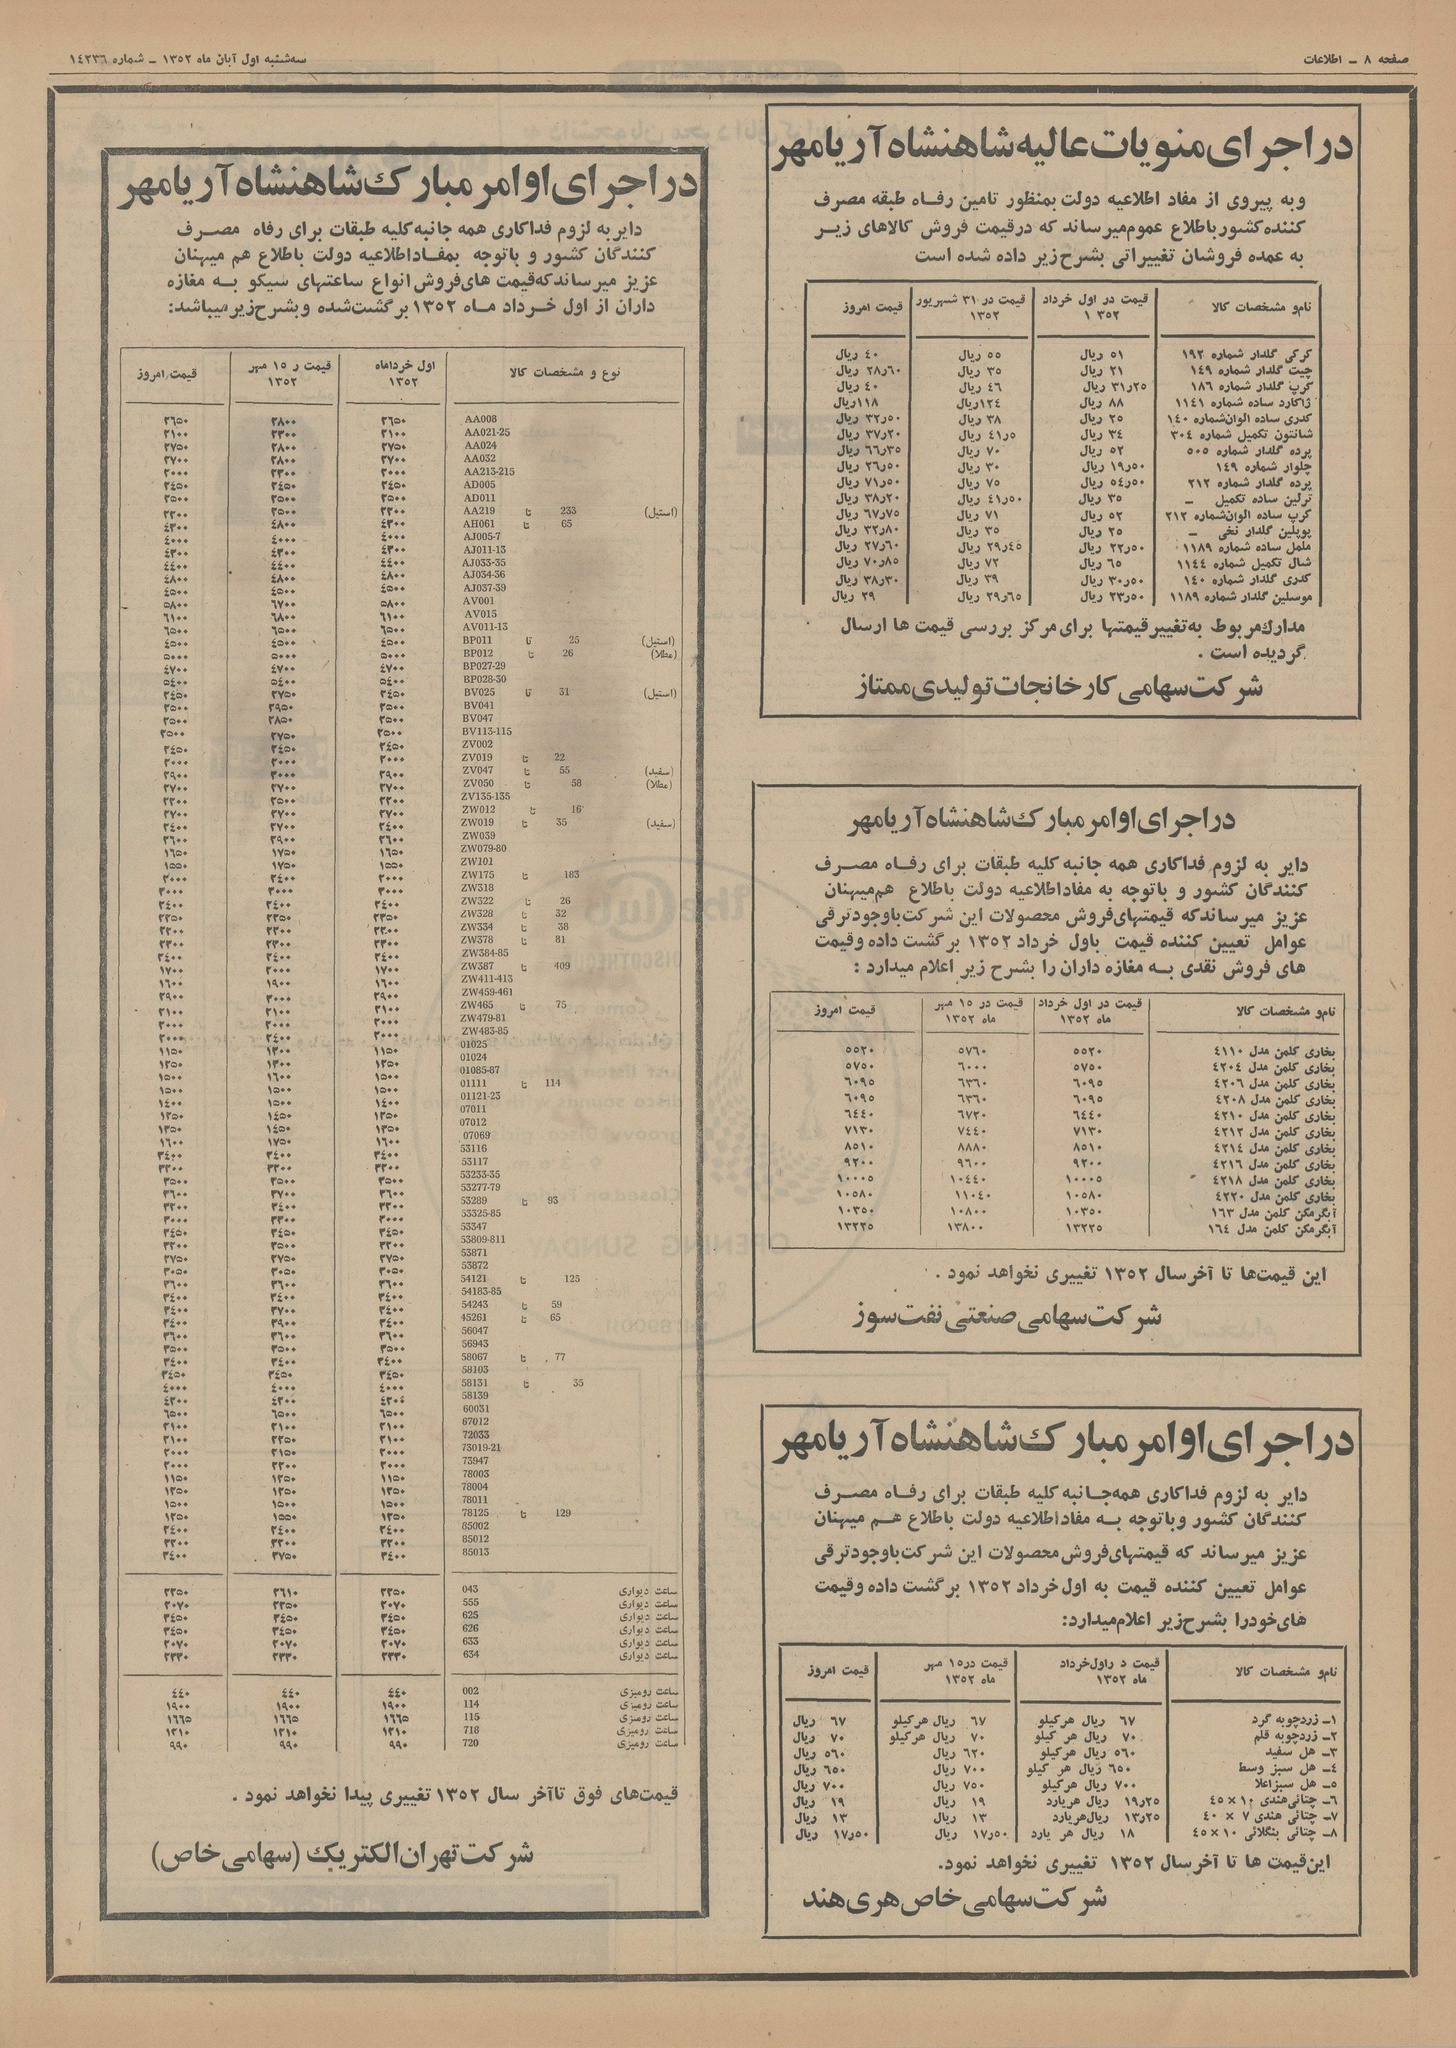 صفحه ۸ ـ اطلاعات
سه‌شنبه اول آبان ماه ۱۳۵۲ ـ شماره ۱۴۲۳۶
در اجرای منویات عالیه شاهنشاه آریامهر
وبه پیروی از مفاد اطلاعیه دولت بمنظور تامین رفاه طبقه مصرف
کننده کشور باطلاع عموم میرساند که درقیمت فروش کالاهای زیر
به عمده فروشان تغییراتی بشرح زیر داده شده است
نام‌و مشخصات کالا | قیمت در اول خرداد ۱۳۵۲ | قیمت در ۳۱ شهریور ۱۳۵۲ | قیمت امروز
کرکی گلدار شماره ۱۹۲ | ۵۱ ریال | ۵۵ ریال | ۴۰ ریال
چیت گلدار شماره ۱۴۹ | ۲۱ ریال | ۳۵ ریال | ۲۸٫۶۰ ریال
کرپ گلدار شماره ۱۸۶ | ۳۱٫۲۵ ریال | ۴۶ ریال | ۴۰ ریال
ژاکارد ساده شماره ۱۱۴۱ | ۸۸ ریال | ۱۲۴ریال | ۱۱۸ریال
کدری ساده الوان‌شماره ۱۴۰ | ۲۵ ریال | ۳۸ ریال | ۳۲٫۵۰ ریال
شانتون تکمیل شماره ۳۰۴ | ۳۴ ریال | ۴۱٫۵ ریال | ۳۷٫۲۰ ریال
پرده گلدار شماره ۵۰۵ | ۵۲ ریال | ۷۰ ریال | ۶۶٫۳۵ ریال
چلوار شماره ۱۴۹ | ۱۹٫۵۰ ریال | ۳۰ ریال | ۲۶٫۵۰ ریال
پرده گلدار شماره ۲۱۲ | ۵۴٫۵۰ ریال | ۷۵ ریال | ۷۱٫۵۰ ریال
ترلین ساده تکمیل ـ | ۳۵ ریال | ۴۱٫۵۰ ریال | ۳۸٫۲۰ ریال
کرپ ساده الوان‌شماره ۲۱۲ | ۵۲ ریال | ۷۱ ریال | ۶۷٫۷۵ ریال
پوپلین گلدار نخی ـ | ۲۵ ریال | ۳۵ ریال | ۳۲٫۸۰ ریال
ململ ساده شماره ۱۱۸۹ | ۲۲٫۵۰ ریال | ۲۹٫۴۵ ریال | ۲۷٫۶۰ ریال
شال تکمیل شماره ۱۱۴۴ | ۶۵ ریال | ۷۲ ریال | ۷۰٫۸۵ ریال
کدری گلدار شماره ۱۴۰ | ۳۰٫۵۰ ریال | ۳۹ ریال | ۳۸٫۳۰ ریال
موسلین گلدار شماره ۱۱۸۹ | ۲۳٫۵۰ ریال | ۲۹٫۶۵ ریال | ۲۹ ریال
مدارك مربوط به‌تغییرقیمتها برای مرکز بررسی قیمت ها ارسال
گردیده است .
شرکت سهامی کارخانجات تولیدی ممتاز
در اجرای اوامر مبارك شاهنشاه آریامهر
دایر به لزوم فداکاری همه جانبه کلیه طبقات برای رفاه مصرف
کنندگان کشور و باتوجه به مفاد اطلاعیه دولت باطلاع هم‌میهنان
عزیز میرساندکه قیمتهای‌فروش محصولات این شرکت‌باوجودترقی
عوامل تعیین کننده قیمت باول خرداد ۱۳۵۲ برگشت داده وقیمت
های فروش نقدی به مغازه داران را بشرح زیر اعلام میدارد :
نام‌و مشخصات کالا | قیمت در اول خرداد ماه ۱۳۵۲ | قیمت در ۱۵ مهر ماه ۱۳۵۲ | قیمت امروز
بخاری کلمن مدل ۴۱۱۰ | ۵۵۲۰ | ۵۷۶۰ | ۵۵۲۰
بخاری کلمن مدل ۴۲۰۴ | ۵۷۵۰ | ۶۰۰۰ | ۵۷۵۰
بخاری کلمن مدل ۴۲۰۶ | ۶۰۹۵ | ۶۳۶۰ | ۶۰۹۵
بخاری کلمن مدل ۴۲۰۸ | ۶۰۹۵ | ۶۳۶۰ | ۶۰۹۵
بخاری کلمن مدل ۴۲۱۰ | ۶۴۴۰ | ۶۷۲۰ | ۶۴۴۰
بخاری کلمن مدل ۴۲۱۲ | ۷۱۳۰ | ۷۴۴۰ | ۷۱۳۰
بخاری کلمن مدل ۴۲۱۴ | ۸۵۱۰ | ۸۸۸۰ | ۸۵۱۰
بخاری کلمن مدل ۴۲۱۶ | ۹۲۰۰ | ۹۶۰۰ | ۹۲۰۰
بخاری کلمن مدل ۴۲۱۸ | ۱۰۰۰۵ | ۱۰۴۴۰ | ۱۰۰۰۵
بخاری کلمن مدل ۴۲۲۰ | ۱۰۵۸۰ | ۱۱۰۴۰ | ۱۰۵۸۰
آبگرمکن کلمن مدل ۱۶۳ | ۱۰۳۵۰ | ۱۰۸۰۰ | ۱۰۳۵۰
آبگرمکن کلمن مدل ۱۶۴ | ۱۳۲۲۵ | ۱۳۸۰۰ | ۱۳۲۲۵
این قیمت‌ها تا آخر سال ۱۳۵۲ تغییری نخواهد نمود .
شرکت سهامی صنعتی نفت سوز
در اجرای اوامر مبارك شاهنشاه آریامهر
دایر به لزوم فداکاری همه‌جانبه کلیه طبقات برای رفاه مصرف
کنندگان کشور وباتوجه به مفاد اطلاعیه دولت باطلاع هم میهنان
عزیز میرساند که قیمتهای‌فروش محصولات این شرکت‌باوجودترقی
عوامل تعیین کننده قیمت به اول‌خرداد ۱۳۵۲ برگشت داده وقیمت
های‌خودرا بشرح‌زیر اعلام‌میدارد:
نام‌و مشخصات کالا | قیمت د راول‌خرداد ماه ۱۳۵۲ | قیمت در۱۵ مهر ۱۳۵۲ | قیمت امروز
۱ـ زردچوبه گرد | ۶۷ ریال هرکیلو | ۶۷ ریال هرکیلو | ۶۷ ریال
۲ـ زردچوبه قلم | ۷۰ ریال هر کیلو | ۷۰ ریال هرکیلو | ۷۰ ریال
۳ـ هل سفید | ۵۶۰ ریال هرکیلو | ۶۲۰ ریال | ۵۶۰ ریال
۴ـ هل سبز وسط | ۶۵۰ ریال هر کیلو | ۷۰۰ ریال | ۶۵۰ ریال
۵ـ هل سبزاعلا | ۷۰۰ ریال هرکیلو | ۷۵۰ ریال | ۷۰۰ ریال
۶ـ چتائی‌هندی ۱۰×۴۵ | ۱۹٫۲۵ ریال هریارد | ۱۹ ریال | ۱۹ ریال
۷ـ چتائی هندی ۷ × ۴۰ | ۱۳٫۲۵ ریال‌هریارد | ۱۳ ریال | ۱۳ ریال
۸ـ چتائی بنگلائی ۱۰×۴۵ | ۱۸ ریال هر یارد | ۱۷٫۵۰ ریال | ۱۷٫۵۰ ریال
این‌قیمت ها تا آخرسال ۱۳۵۲ تغییری نخواهد نمود.
شرکت سهامی خاص هری هند
در اجرای اوامر مبارك شاهنشاه آریامهر
دایر به لزوم فداکاری همه جانبه کلیه طبقات برای رفاه مصرف
کنندگان کشور و باتوجه بمفاد اطلاعیه دولت باطلاع هم میهنان
عزیز میرساندکه قیمت های‌فروش انواع ساعتهای سیکو به مغازه
داران از اول خرداد ماه ۱۳۵۲ برگشت‌شده وبشرح‌زیرمیباشد:
نوع و مشخصات کالا | اول خردادماه ۱۳۵۲ | قیمت ر ۱۵ مهر ۱۳۵۲ | قیمت امروز
AA008 | ۲۶۵۰ | ۲۸۰۰ | ۲۶۵۰
AA021-25 | ۲۱۰۰ | ۲۳۰۰ | ۲۱۰۰
AA024 | ۲۷۵۰ | ۲۸۰۰ | ۲۷۵۰
AA032 | ۲۷۰۰ | ۲۸۰۰ | ۲۷۰۰
AA213-215 | ۲۰۰۰ | ۲۳۰۰ | ۲۰۰۰
AD005 | ۲۴۵۰ | ۲۴۵۰ | ۲۴۵۰
AD011 | ۲۵۰۰ | ۲۵۰۰ | ۲۵۰۰
AA219 تا 233 (استیل) | ۲۲۰۰ | ۲۵۰۰ | ۲۲۰۰
AH061 تا 65 | ۴۳۰۰ | ۴۸۰۰ | ۴۳۰۰
AJ005-7 | ۴۰۰۰ | ۴۰۰۰ | ۴۰۰۰
AJ011-13 | ۴۳۰۰ | ۴۳۰۰ | ۴۳۰۰
AJ033-35 | ۴۴۰۰ | ۴۴۰۰ | ۴۴۰۰
AJ034-36 | ۴۸۰۰ | ۴۸۰۰ | ۴۸۰۰
AJ037-39 | ۴۵۰۰ | ۴۵۰۰ | ۴۵۰۰
AV001 | ۵۸۰۰ | ۶۷۰۰ | ۵۸۰۰
AV015 | ۶۱۰۰ | ۶۸۰۰ | ۶۱۰۰
AV011-13 | ۶۵۰۰ | ۶۵۰۰ | ۶۵۰۰
BP011 تا 25 (استیل) | ۴۵۰۰ | ۴۵۰۰ | ۴۵۰۰
BP012 تا 26 (مطلا) | ۵۰۰۰ | ۵۰۰۰ | ۵۰۰۰
BP027-29 | ۴۷۰۰ | ۴۷۰۰ | ۴۷۰۰
BP028-30 | ۵۴۰۰ | ۵۴۰۰ | ۵۴۰۰
BV025 تا 31 (استیل) | ۲۴۵۰ | ۲۷۵۰ | ۲۴۵۰
BV041 | ۲۵۰۰ | ۲۹۵۰ | ۲۵۰۰
BV047 | ۲۵۰۰ | ۲۸۵۰ | ۲۵۰۰
BV113-115 | ۲۵۰۰ | ۲۷۵۰ | ۲۵۰۰
ZV002 | ۲۴۵۰ | ۲۴۵۰ | ۲۴۵۰
ZV019 تا 22 | ۲۰۰۰ | ۲۰۰۰ | ۲۰۰۰
ZV047 تا 55 (سفید) | ۲۹۰۰ | ۳۰۰۰ | ۲۹۰۰
ZV050 تا 58 (مطلا) | ۲۷۰۰ | ۲۷۰۰ | ۲۷۰۰
ZV135-135 | ۲۲۰۰ | ۲۵۰۰ | ۲۲۰۰
ZW012 تا 16 | ۲۷۰۰ | ۲۷۰۰ | ۲۷۰۰
ZW019 تا 35 (سفید) | ۲۴۰۰ | ۲۷۰۰ | ۲۴۰۰
ZW039 | ۲۶۰۰ | ۲۹۰۰ | ۲۶۰۰
ZW079-80 | ۱۶۵۰ | ۱۷۵۰ | ۱۶۵۰
ZW101 | ۱۵۵۰ | ۱۷۵۰ | ۱۵۵۰
ZW175 تا 183 | ۲۰۰۰ | ۲۴۰۰ | ۲۰۰۰
ZW318 | ۳۰۰۰ | ۳۰۰۰ | ۳۰۰۰
ZW322 تا 26 | ۲۴۰۰ | ۲۴۰۰ | ۲۴۰۰
ZW328 تا 32 | ۲۲۵۰ | ۲۲۵۰ | ۲۲۵۰
ZW334 تا 38 | ۲۲۰۰ | ۲۲۰۰ | ۲۲۰۰
ZW378 تا 81 | ۲۳۰۰ | ۲۳۰۰ | ۲۳۰۰
ZW384-85 | ۲۴۰۰ | ۲۴۰۰ | ۲۴۰۰
ZW387 تا 409 | ۱۷۰۰ | ۲۰۰۰ | ۱۷۰۰
ZW411-413 | ۱۶۰۰ | ۱۹۰۰ | ۱۶۰۰
ZW459-461 | ۲۹۰۰ | ۳۰۰۰ | ۲۹۰۰
ZW465 تا 75 | ۲۱۰۰ | ۲۱۰۰ | ۲۱۰۰
ZW479-81 | ۲۰۰۰ | ۲۰۰۰ | ۲۰۰۰
ZW483-85 | ۲۰۰۰ | ۲۴۰۰ | ۲۰۰۰
01025 | ۱۱۵۰ | ۱۳۰۰ | ۱۱۵۰
01024 | ۱۲۵۰ | ۱۳۰۰ | ۱۲۵۰
01085-87 | ۱۵۰۰ | ۱۶۰۰ | ۱۵۰۰
01111 تا 114 | ۱۵۰۰ | ۱۵۰۰ | ۱۵۰۰
01121-23 | ۱۴۰۰ | ۱۵۰۰ | ۱۴۰۰
07011 | ۱۲۵۰ | ۱۴۵۰ | ۱۲۵۰
07012 | ۱۳۵۰ | ۱۴۵۰ | ۱۳۵۰
07069 | ۱۶۰۰ | ۱۷۵۰ | ۱۶۰۰
53116 | ۳۴۰۰ | ۳۴۰۰ | ۳۴۰۰
53117 | ۳۲۰۰ | ۳۲۰۰ | ۳۲۰۰
53233-35 | ۳۵۰۰ | ۳۵۰۰ | ۳۵۰۰
53277-79 | ۳۶۰۰ | ۳۷۰۰ | ۳۶۰۰
53289 تا 93 | ۳۲۰۰ | ۳۲۰۰ | ۳۲۰۰
53325-85 | ۳۰۰۰ | ۳۰۰۰ | ۳۰۰۰
53347 | ۳۴۵۰ | ۳۴۵۰ | ۳۴۵۰
53809-811 | ۳۲۰۰ | ۳۵۰۰ | ۳۲۰۰
53871 | ۳۷۵۰ | ۳۷۵۰ | ۳۷۵۰
53872 | ۳۰۵۰ | ۳۰۵۰ | ۳۰۵۰
54121 تا 125 | ۳۶۰۰ | ۳۶۰۰ | ۳۶۰۰
54183-85 | ۳۴۰۰ | ۳۴۰۰ | ۳۴۰۰
54243 تا 59 | ۳۴۰۰ | ۳۷۰۰ | ۳۴۰۰
45261 تا 65 | ۳۴۰۰ | ۳۹۰۰ | ۳۴۰۰
56047 | ۳۶۰۰ | ۳۶۰۰ | ۳۶۰۰
56943 | ۳۵۰۰ | ۳۵۰۰ | ۳۵۰۰
58067 تا 77 | ۳۴۰۰ | ۳۴۰۰ | ۳۴۰۰
58103 | ۳۴۵۰ | ۳۴۵۰ | ۳۴۵۰
58131 تا 35 | ۴۰۰۰ | ۴۰۰۰ | ۴۰۰۰
58139 | ۴۲۰۰ | ۴۲۰۰ | ۴۲۰۰
60031 | ۶۵۰۰ | ۶۵۰۰ | ۶۵۰۰
67012 | ۲۱۰۰ | ۲۱۰۰ | ۲۱۰۰
72033 | ۲۱۰۰ | ۲۲۵۰ | ۲۱۰۰
73019-21 | ۲۰۰۰ | ۲۱۵۰ | ۲۰۰۰
73947 | ۲۰۰۰ | ۲۲۰۰ | ۲۰۰۰
78003 | ۱۱۵۰ | ۱۲۵۰ | ۱۱۵۰
78004 | ۱۲۵۰ | ۱۲۵۰ | ۱۲۵۰
78011 | ۱۵۰۰ | ۱۵۰۰ | ۱۵۰۰
78125 تا 129 | ۱۲۵۰ | ۱۵۵۰ | ۱۲۵۰
85002 | ۲۴۰۰ | ۲۴۰۰ | ۲۴۰۰
85012 | ۳۲۰۰ | ۳۲۰۰ | ۳۲۰۰
85013 | ۳۴۰۰ | ۳۷۵۰ | ۳۴۰۰
ساعت دیواری 043 | ۲۲۵۰ | ۲۶۱۰ | ۲۲۵۰
ساعت دیواری 555 | ۲۰۷۰ | ۲۲۵۰ | ۲۰۷۰
ساعت دیواری 625 | ۳۴۵۰ | ۳۴۵۰ | ۳۴۵۰
ساعت دیواری 626 | ۳۴۵۰ | ۳۴۵۰ | ۳۴۵۰
ساعت دیواری 633 | ۲۰۷۰ | ۲۰۷۰ | ۲۰۷۰
ساعت دیواری 634 | ۲۳۳۰ | ۲۳۳۰ | ۲۳۳۰
ساعت رومیزی 002 | ۴۴۰ | ۴۴۰ | ۴۴۰
ساعت رومیزی 114 | ۱۹۰۰ | ۱۹۰۰ | ۱۹۰۰
ساعت رومیزی 115 | ۱۶۶۵ | ۱۶۶۵ | ۱۶۶۵
ساعت رومیزی 718 | ۱۲۱۰ | ۱۲۱۰ | ۱۲۱۰
ساعت رومیزی 720 | ۹۹۰ | ۹۹۰ | ۹۹۰
قیمت‌های فوق تاآخر سال ۱۳۵۲ تغییری پیدا نخواهد نمود .
شرکت تهران الکتریك (سهامی خاص)